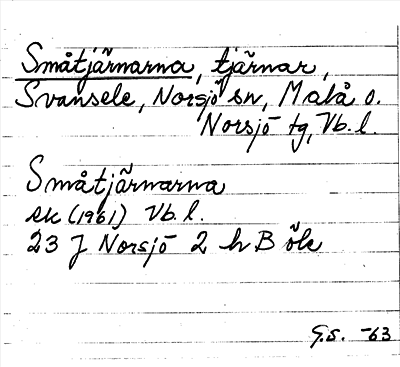 Småtjärnarna, tjärnar,
Svansele, Norsjö sn, Malå o.
Norsjö tg, Vb. l.
Småtjärnarna
ek (1961) Vb. l.
23 J Norsjö 2 h B ök
G.S. -63